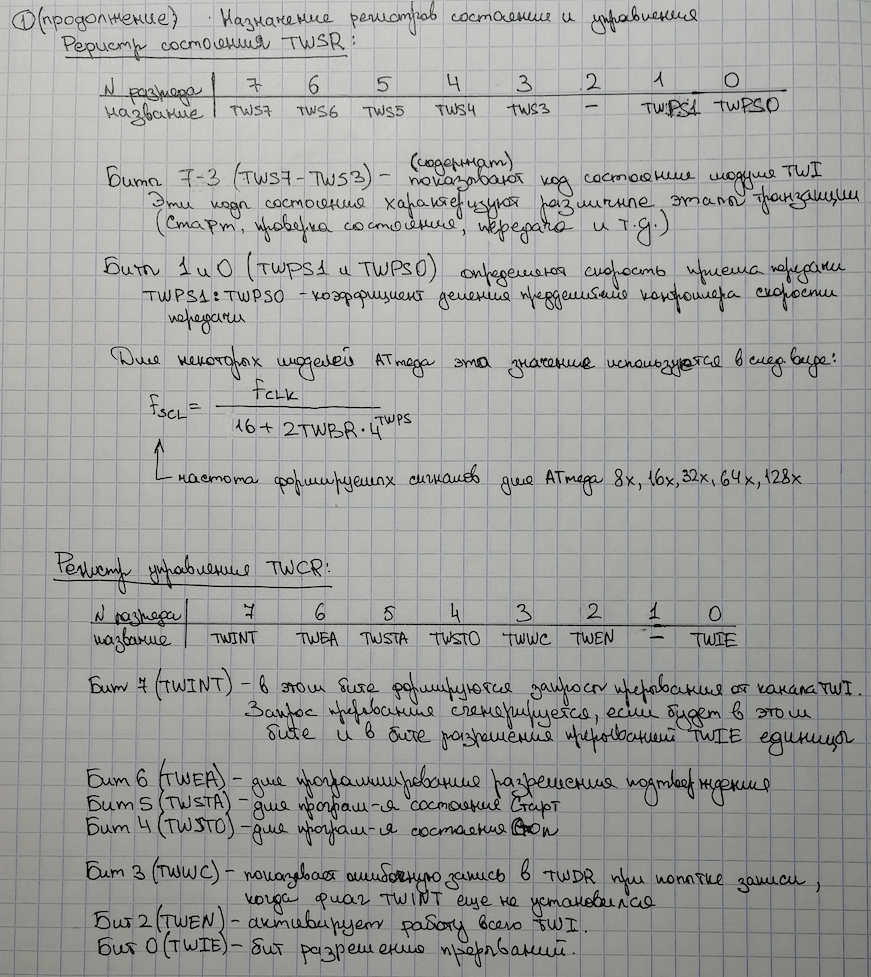 ① (продолжение) · Назначение регистров состояния и управления
Регистр состояния TWSR:
N разряда 7 6 5 4 3 2 1 0
название TWS7 TWS6 TWS5 TWS4 TWS3 – TWPS1 TWPS0
(содержат)
Биты 7-3 (TWS7-TWS3) – показывают код состояние модуля TWI
Эти коды состояния характеризуют различные этапы транзакции
(Старт, проверка состояния, передача и т.д.)
Биты 1 и 0 (TWPS1 и TWPS0) определяют скорость приема передачи
TWPS1:TWPS0 - коэффициент деления предделителя контроллера скорости
передачи
Для некоторых моделей ATmega эта значение используется в след виде:
fSCL = fCLK / (16 + 2TWBR · 4^TWPS)
частота формируемых сигналов для ATmega 8x, 16x, 32x, 64x, 128x
Регистр управления TWCR:
N разряда 7 6 5 4 3 2 1 0
название TWINT TWEA TWSTA TWSTO TWWC TWEN – TWIE
Бит 7 (TWINT) – в этом бите формируются запросы прерывания от канала TWI.
Запрос прерывания сгенерируется, если будет в этом
бите и в бите разрешения прерываний TWIE единицы
Бит 6 (TWEA) – для программирования разрешения подтверждения
Бит 5 (TWSTA) – для програм-я состояния Старт
Бит 4 (TWSTO) – для програм-я состояния Стоп
Бит 3 (TWWC) – показывает ошибочную запись в TWDR при попытке записи,
когда флаг TWINT еще не установился
Бит 2 (TWEN) – активирует работу всего TWI.
Бит 0 (TWIE) – бит разрешения прерываний.